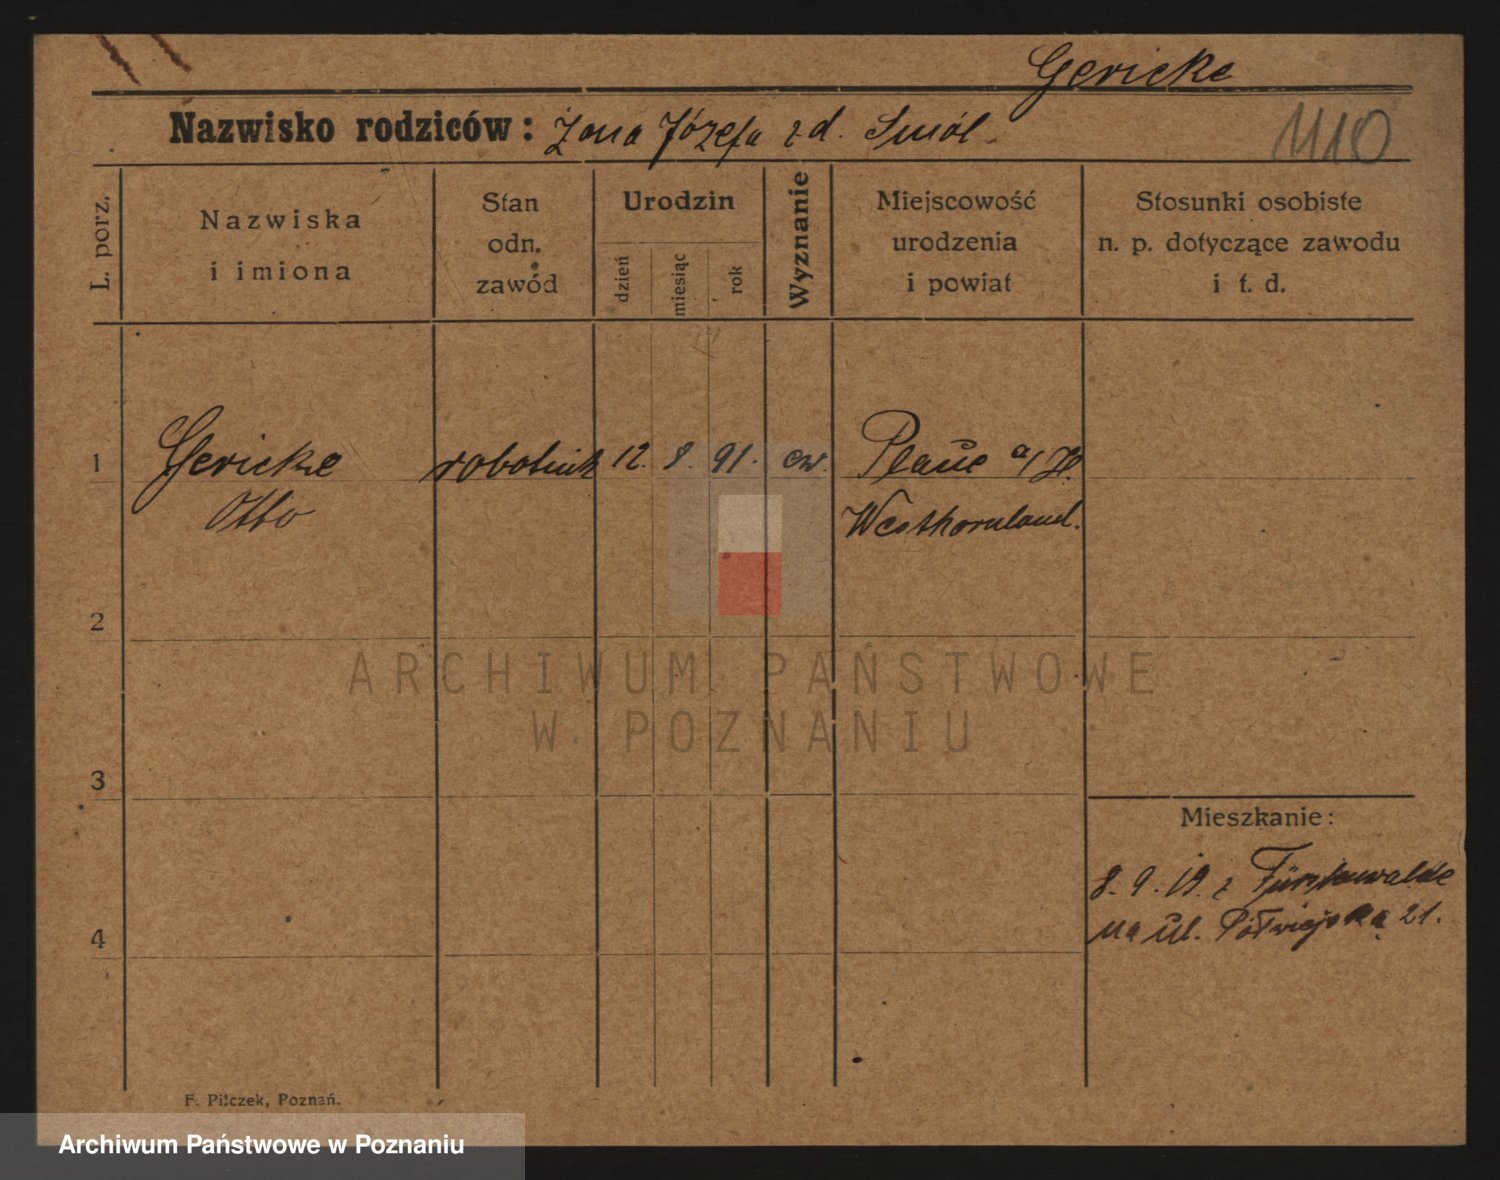 Gericke
Nazwisko rodziców: Żona Józefa z d. Smól
1110
L. porz.
Nazwiska
i imiona
Stan
odn.
zawód
Urodzin
dzień
miesiąc
rok
Wyznanie
Miejscowość
urodzenia
i powiat
Stosunki osobiste
n. p. dotyczące zawodu
i t. d.
1 Gericke robotnik 12. 8. 91. ew. Plaue a/H.
Otto Westhavelland.
2
ARCHIWUM PAŃSTWOWE
W POZNANIU
3
Mieszkanie:
8. 9. 19. z Fürstenwalde
na ul. Półwiejska 21.
4
F. Pilczek, Poznań.
Archiwum Państwowe w Poznaniu